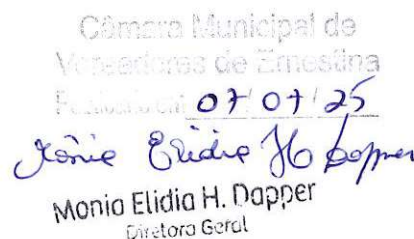 Câmara Municipal de
Vereadores de Ernestina
07/07/25
Mônia Elidia H Dapper
Monia Elidia H. Dapper
Diretora Geral